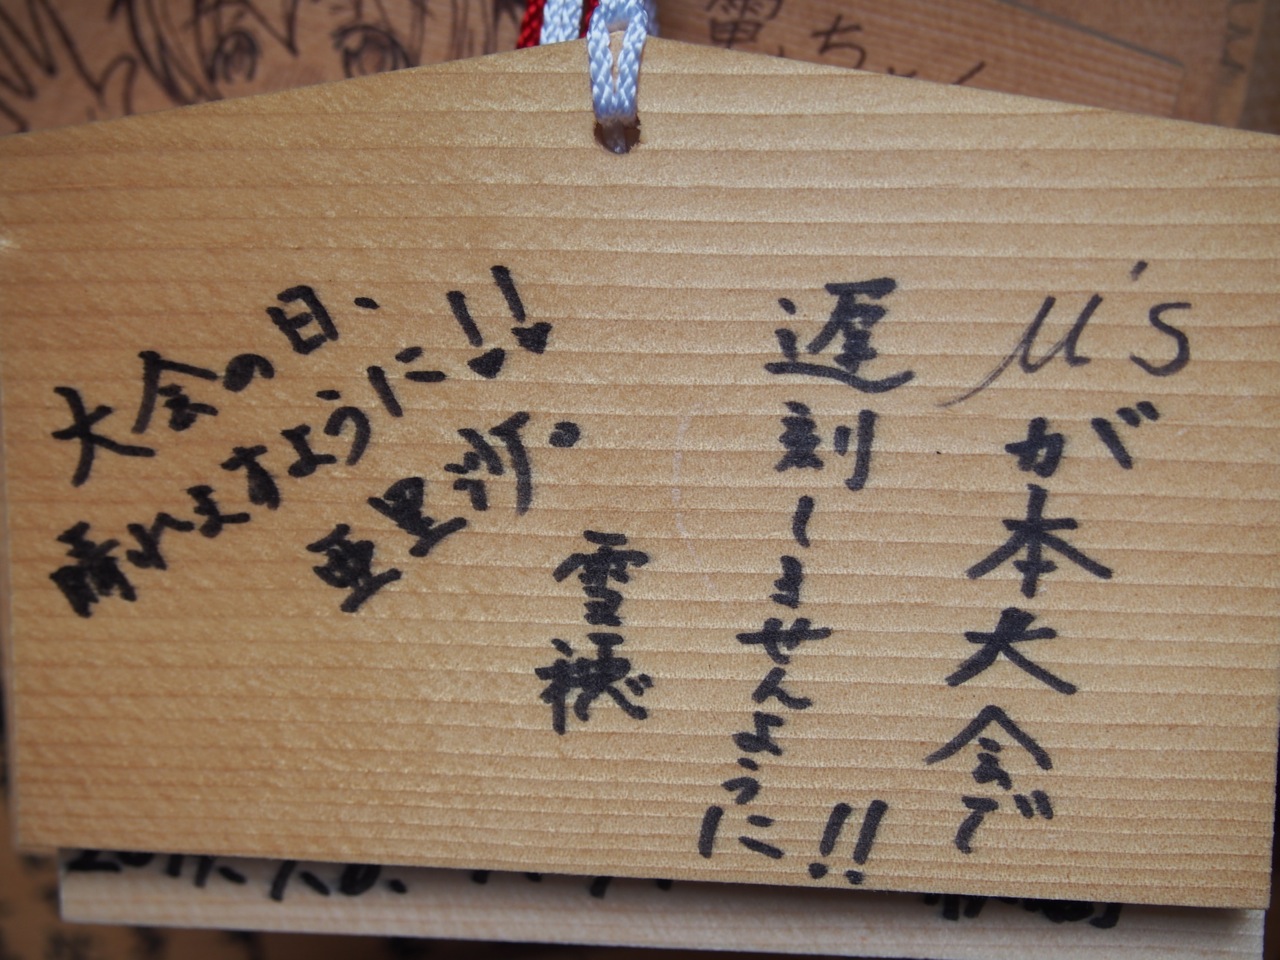 μ'sが本大会で
遅刻しませんように!!
雪穂
大会の日、
晴れますように!!
亜里沙。
ちゃん